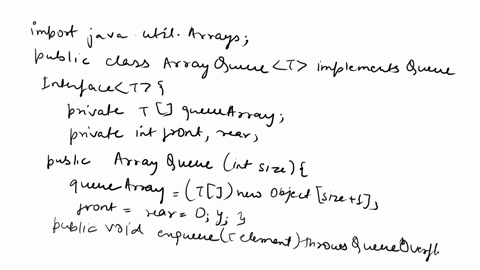 import java.util.Arrays;
public class ArrayQueue<T> implements Queue
Interface<T> {
private T[] queueArray;
private int front, rear,
public ArrayQueue (int size){
queueArray = (T[]) new Object [size+1],
front = rear = 0; y, }
public void enqueue(T element)throws QueueOverfl